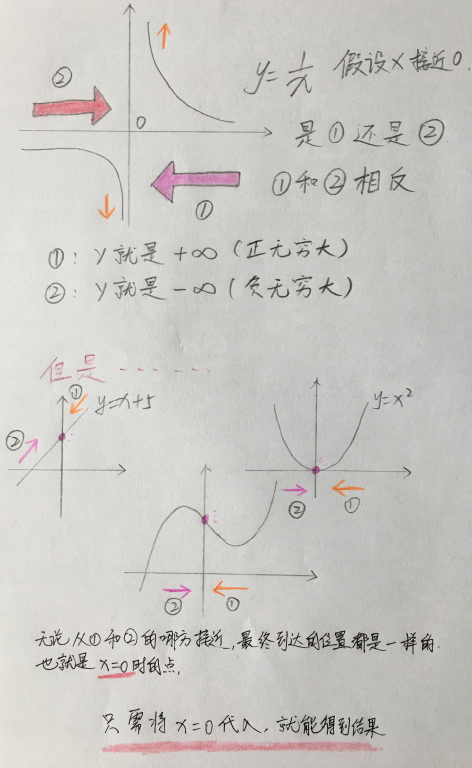 ②
y=1/x 假设x接近0.
0
是①还是②
①
①和②相反
①: y就是+∞(正无穷大)
②: y就是-∞(负无穷大)
但是........
①
y=x+5
y=x²
②
② ①
② ①
无论从①和②的哪方接近,最终到达的位置都是一样的.
也就是x=0时的点,
只需将x=0代入,就能得到结果